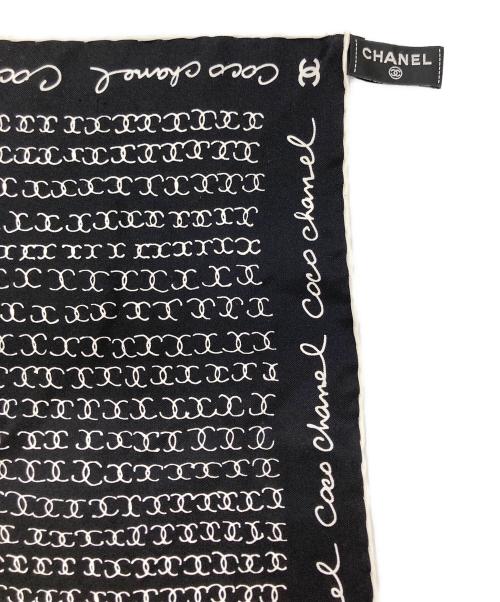 Coco chanel
CHANEL
Coco chanel
Coco chanel